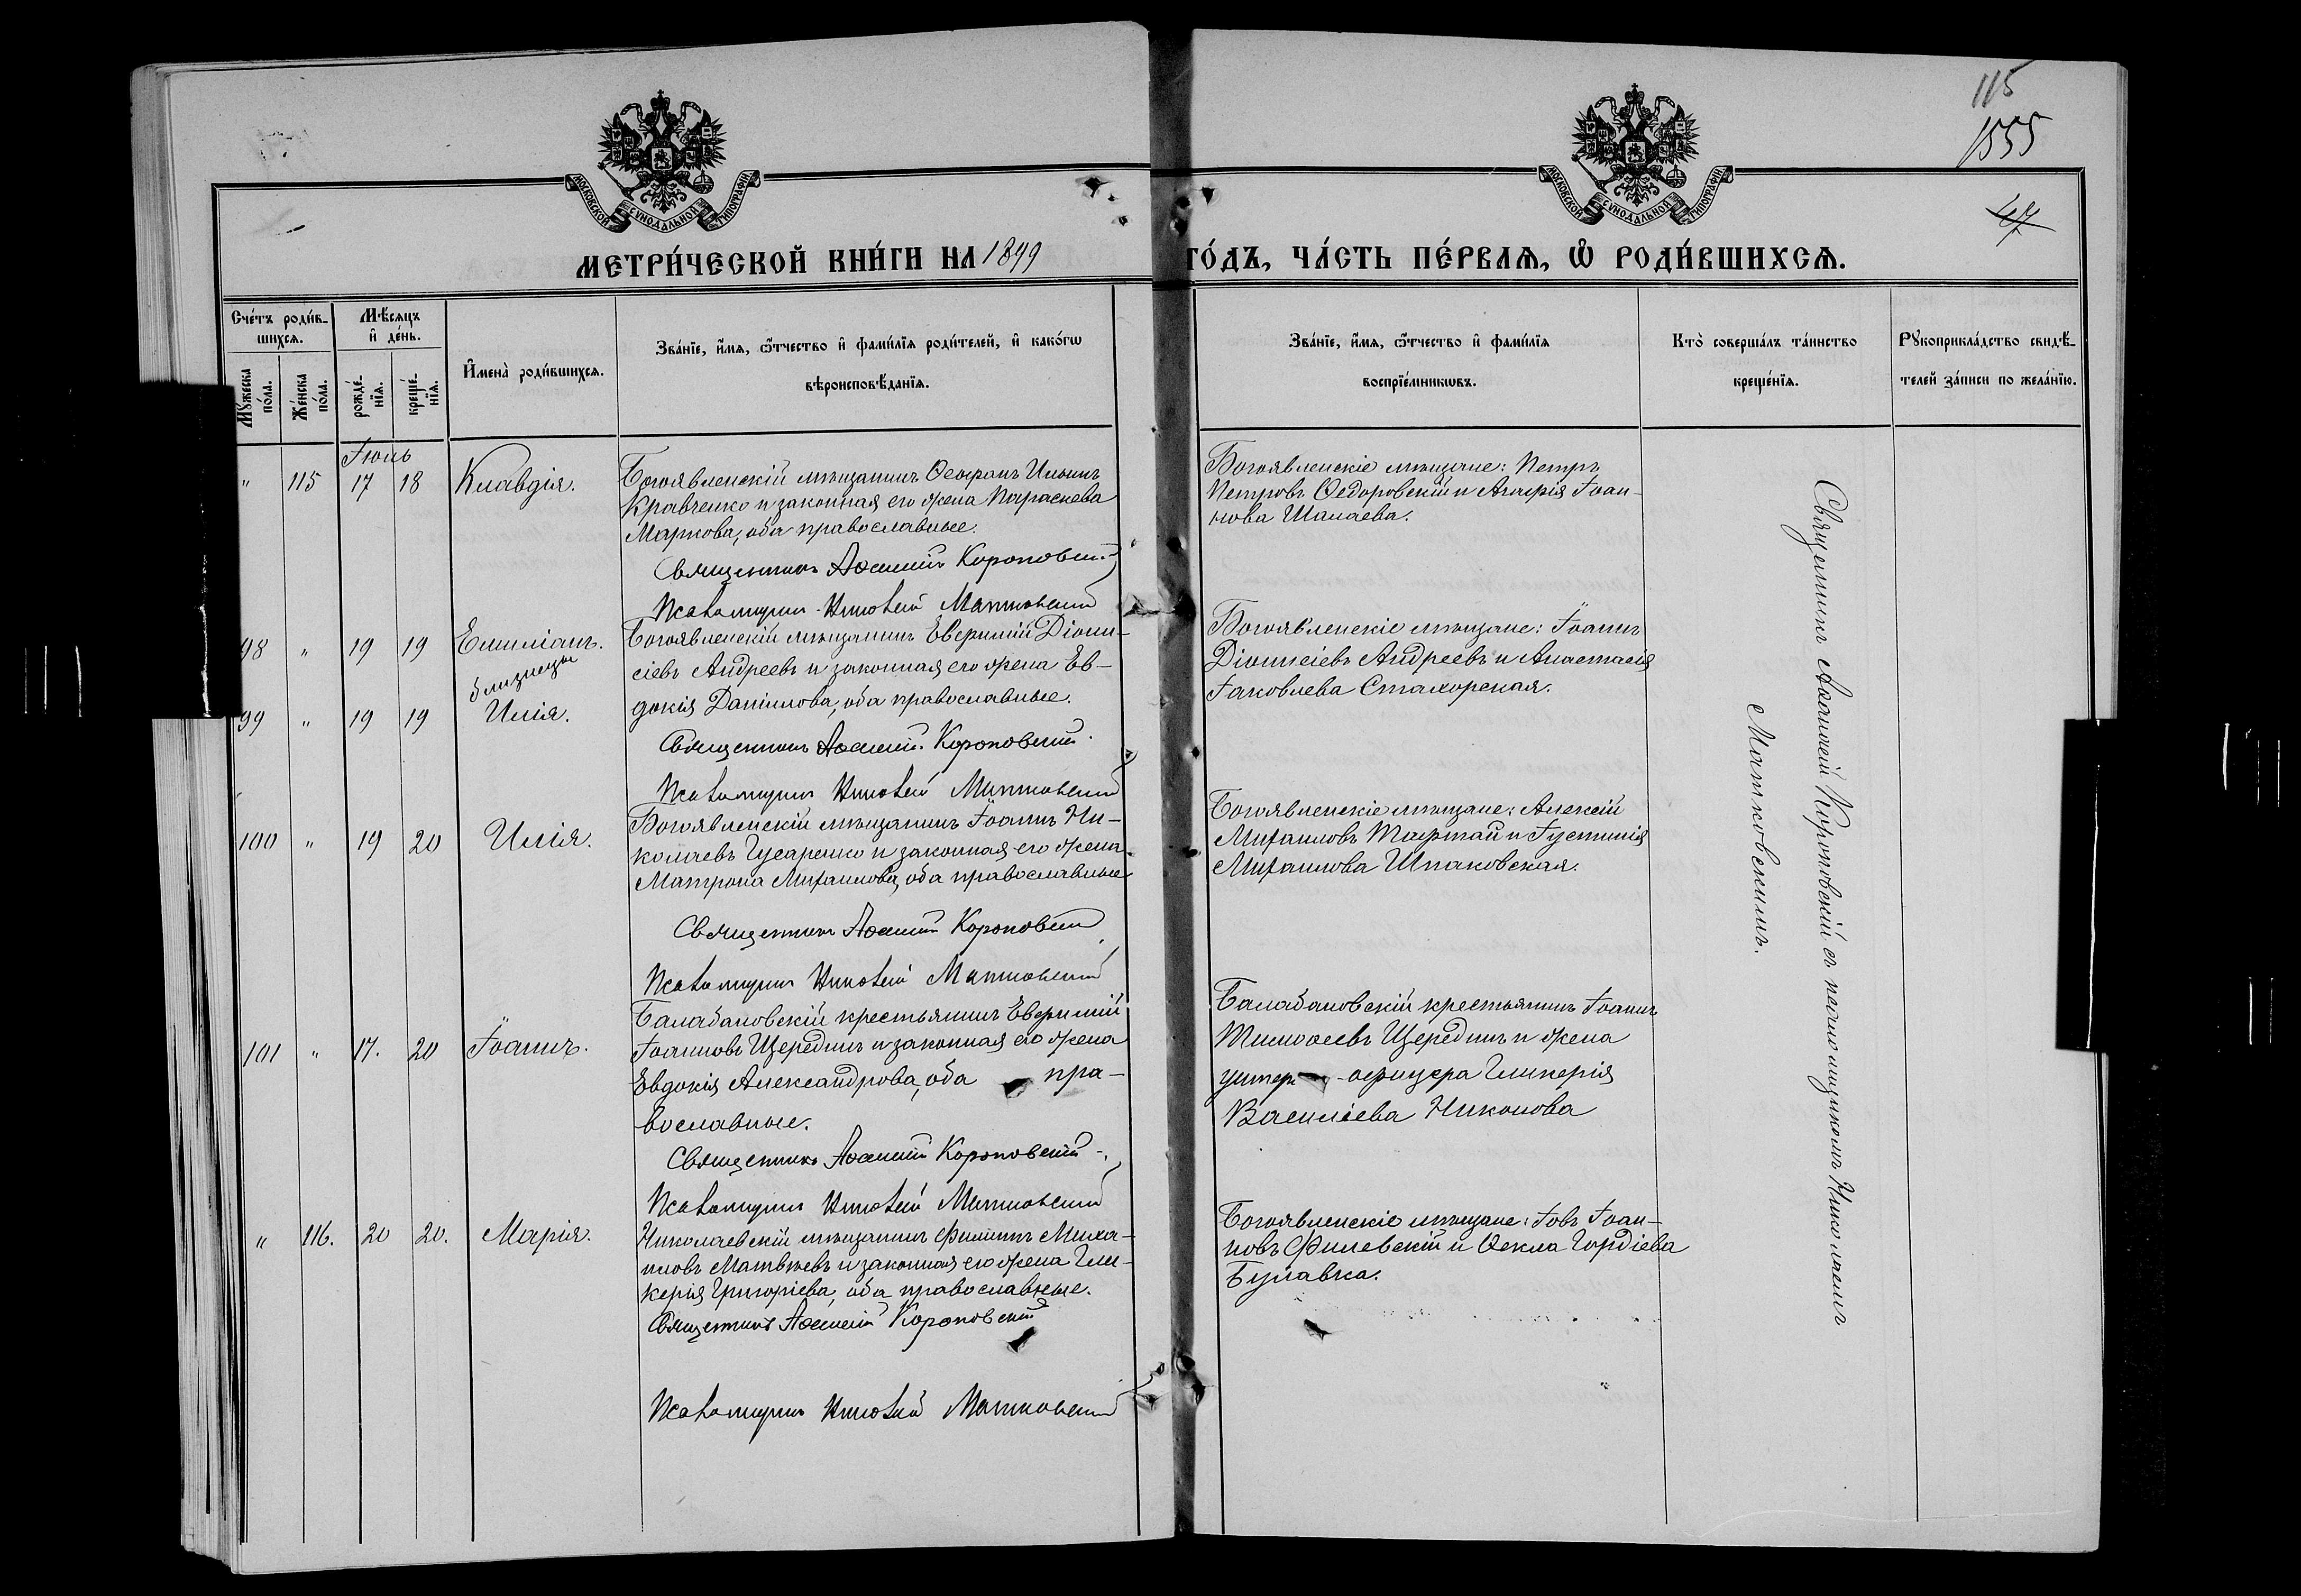 115
1555
47
МОСКОВСКОЙ СѴНОДАЛЬНОЙ ТИПОГРАФІИ
МОСКОВСКОЙ СѴНОДАЛЬНОЙ ТИПОГРАФІИ
МЕТРИ́ЧЕСКОЙ КНИ́ГИ НА 1899
ГО́ДЪ, ЧА́СТЬ ПЕ́РВАѦ, Ѽ РОДИ́ВШИХСѦ.
Сче́тъ роди́в-
шихсѧ.
Мꙋжеска
по́ла.
Же́нска
по́ла.
Мѣ́сѧцъ
и҆ де́нь.
рожде́-
нїѧ.
креще́-
нїѧ.
И҆мена̀ роди́вшихсѧ.
Зва́нїе, и҆́мѧ, ѻ҆́тчество и҆ фами́лїѧ роди́телей, и҆ како́гѡ
вѣроисповѣ́данїѧ.
Зва́нїе, и҆́мѧ, ѻ҆́тчество и҆ фами́лїѧ
воспрїе́мникѡвъ.
Кто̀ соверша́лъ та́инство
креще́нїѧ.
Рꙋкоприкла́дство свидѣ́-
телей за́писи по жела́нїю.
Іюль
" 115 17 18 Клавдія.
Богоявленскій мѣщанинъ Ѳеофанъ Ильинъ
Кравченко и законная его жена Параскева
Маркова, оба православные.
Священникъ Аѳанасій Короповскій
Псаломщикъ Николай Матковскій
Богоявленскіе мѣщане: Петръ
Петровъ Ѳедоровскій и Агафія Іоан-
нова Шалаева.
98 " 19 19 Емиліанъ.
близнецы
99 " 19 19 Илія.
Богоявленскій мѣщанинъ Евфимій Діони-
сіевъ Андреевъ и законная его жена Ев-
докія Даніилова, оба православные.
Священникъ Аѳанасій Короповскій
Псаломщикъ Николай Матковскій
Богоявленскіе мѣщане: Іоаннъ
Діонисіевъ Андреевъ и Анастасія
Іаковлева Стахорская.
100 " 19 20 Илія.
Богоявленскій мѣщанинъ Іоаннъ Ни-
колаевъ Гусаренко и законная его жена
Матрона Михаилова, оба православные
Священникъ Аѳанасій Короповскій
Псаломщикъ Николай Матковскій
Богоявленскіе мѣщане: Алексій
Михаиловъ и Іустинія
Михаилова Шпаковская.
101 " 17. 20 Іоаннъ.
Балабановскій крестьянинъ Евфимій
Іоанновъ Щерединъ и законная его жена
Евдокія Александрова, оба пра-
вославные.
Священникъ Аѳанасій Короповскій
Псаломщикъ Николай Матковскій
Балабановскій крестьянинъ Іоаннъ
Тимоѳеевъ Щерединъ и жена
унтеръ-офицера Гликерія
Василіева Никонова
" 116. 20 20. Марія.
Николаевскій мѣщанинъ Филиппъ Миха-
иловъ Матвѣевъ и законная его жена Гли-
керія Григоріева, оба православные.
Священникъ Аѳанасій Короповскій
Псаломщикъ Николай Матковскій
Богоявленскіе мѣщане: Іовъ Іоан-
новъ Филевскій и Ѳекла Гордіева
Булавка.
Священникъ Аѳанасій Короповскій съ псаломщикомъ Николаемъ
Матковскимъ.